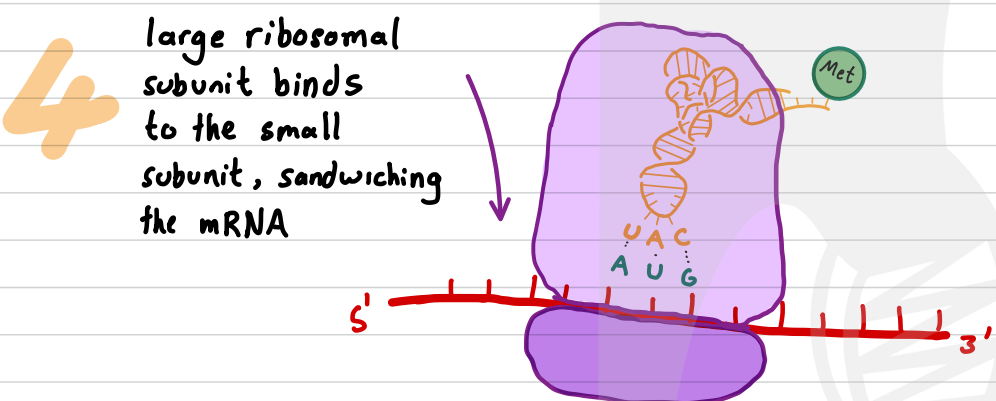 4
large ribosomal
subunit binds
to the small
subunit, sandwiching
the mRNA
Met
U A C
A U G
5'
3'